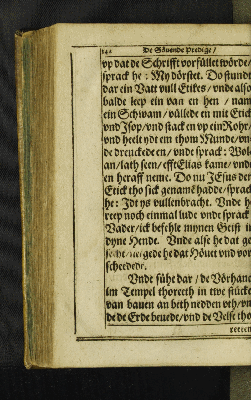 142 De Sövende Predige /
vp dat de Schrifft vorfüllet wörde/
sprack he : My dörstet. Do stundt
dar ein Vatt vull Etikes / vnde also
balde leep ein van en hen / nam
ein Schwam / vüllede en mit Etick
vnd Jsop / vnd stack en vp ein Rohr /
vnd heelt ydt em thom Munde / vn
de drenckede en / vnde sprack : Wol
an / lath seen / efft Elias kame / vnde
en heraff neme. Do nu JEsus den
Etick tho sick genamē hadde / sprack
he : Jdt ys vullenbracht. Vnde he
reep noch einmal lude vnde sprack
Vader / ick befehle mynen Geist in
dyne Hende. Vnde alse he dat ge
secht / negede he dat Höuet vnd vor
scheedede.
Vnde sühe dar / de Vörhanc
im Tempel thoreeth in twe stücke
van bauen an beth nedden vth / vn
de de Erde beuede / vnd de Velse tho
reeten